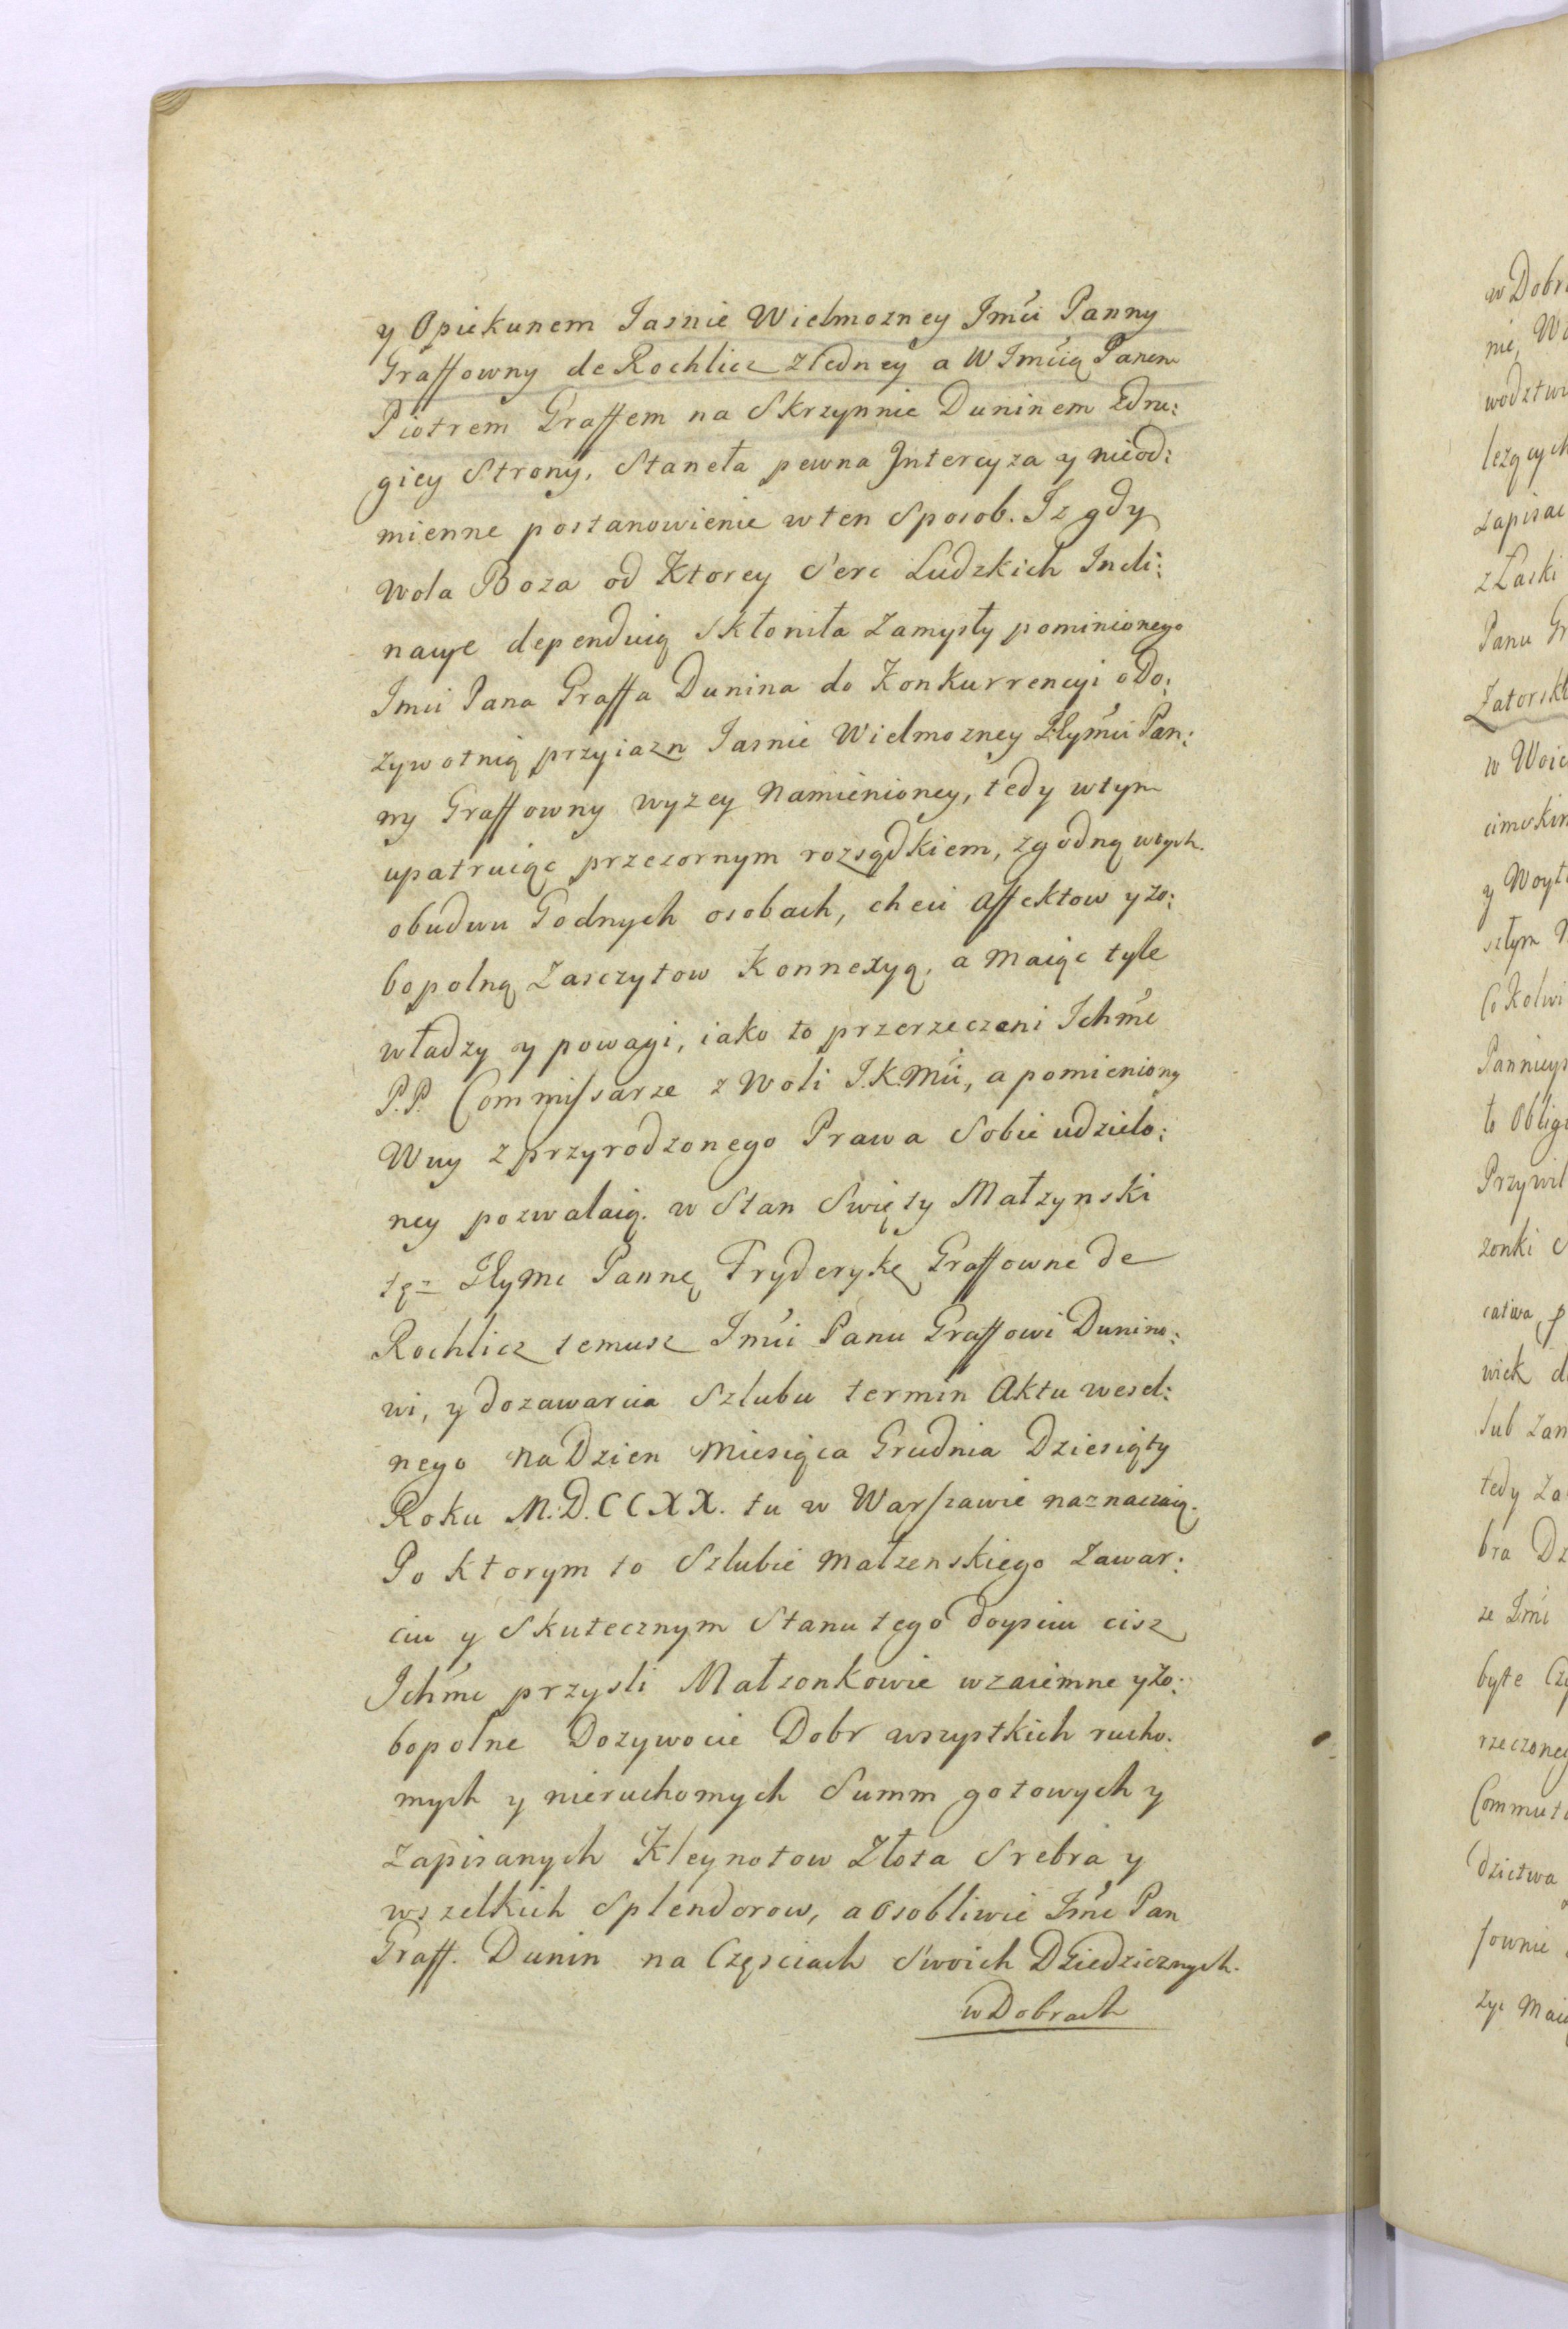 y Opiekunem Jasnie Wielmozney Jmci Panny
Graffowny de Rochlicz z Jedney a W Jmcią Panem
Piotrem Graffem na Skrzynnie Duninem zdru:
giey Strony, Staneła pewna Intercyza y nieod:
mienne postanowienie wten Sposob. Iz gdy
Wola Boza od Ktorey Serc Ludzkich Incli:
nacye dependuią Skłoniła Zamysły pominionego
Jmci Pana Graffa Dunina do Konkurrencyi o Do:
zywotnią przyiazn Jasnie Wielmozney Jeymci Pan:
ny Graffowny wyzey Namienioney, tedy wtym
upatruiąc przezornym rozsądkiem, zgodną wtych.
obudwu Godnych osobach, checi Affektow y zo:
bopolną Zasczytow Konnexyą, a Maiąc tyle
władzy y powagi, iako to przerzeczeni Ichmc
P.P. Commissarze z Woli J.K.Mci, a pomieniony
Wuy z przyrodzonego Prawa Sobie udzielo:
ney pozwalaią. w Stan Swięty Małzynski
tęz Jeymc Pannę Fryderykę Graffowne de
Rochlicz temusz Jmci Panu Graffowi Dunino:
wi, y dozawarcia Szlubu termin Aktu wesel:
nego Na Dzien Miesiąca Grudnia Dziesiąty
Roku M.D.CCXX. tu w Warszawie naznaczaią.
Po ktorym to Szlubie Małzenskiego Zawar:
ciu y Skutecznym Stanu tego doysciu cisz
Ichmc przysli Małzonkowie wzaiemne y zo:
bopolne Dozywocie Dobr wszystkich rucho:
mych y nieruchomych Summ gotowych y
Zapisanych Kleynotow Złota Srebra y
wszelkich Splendorow, a osobliwie Jmc Pan
Graff. Dunin na Częsciach Swoich Dziedzicznych.
w Dobrach
w Dobr
wodztw
lezących
z Łaski
Panu Gr
w Woie
szłym
to Oblig
Przywil
zonki
tedy Za
bra Dz
ze Jmć
rzeczoney
dzictwa